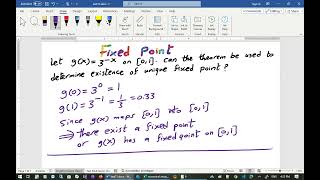 Fixed Point
Let g(x) = 3^-x on [0,1]. Can the theorem be used to
determine existence of unique fixed point?
g(0) = 3^0 = 1
g(1) = 3^-1 = 1/3 = 0.33
Since g(x) maps [0,1] into [0,1]
⇒ there exist a fixed point
or g(x) has a fixed point on [0,1]